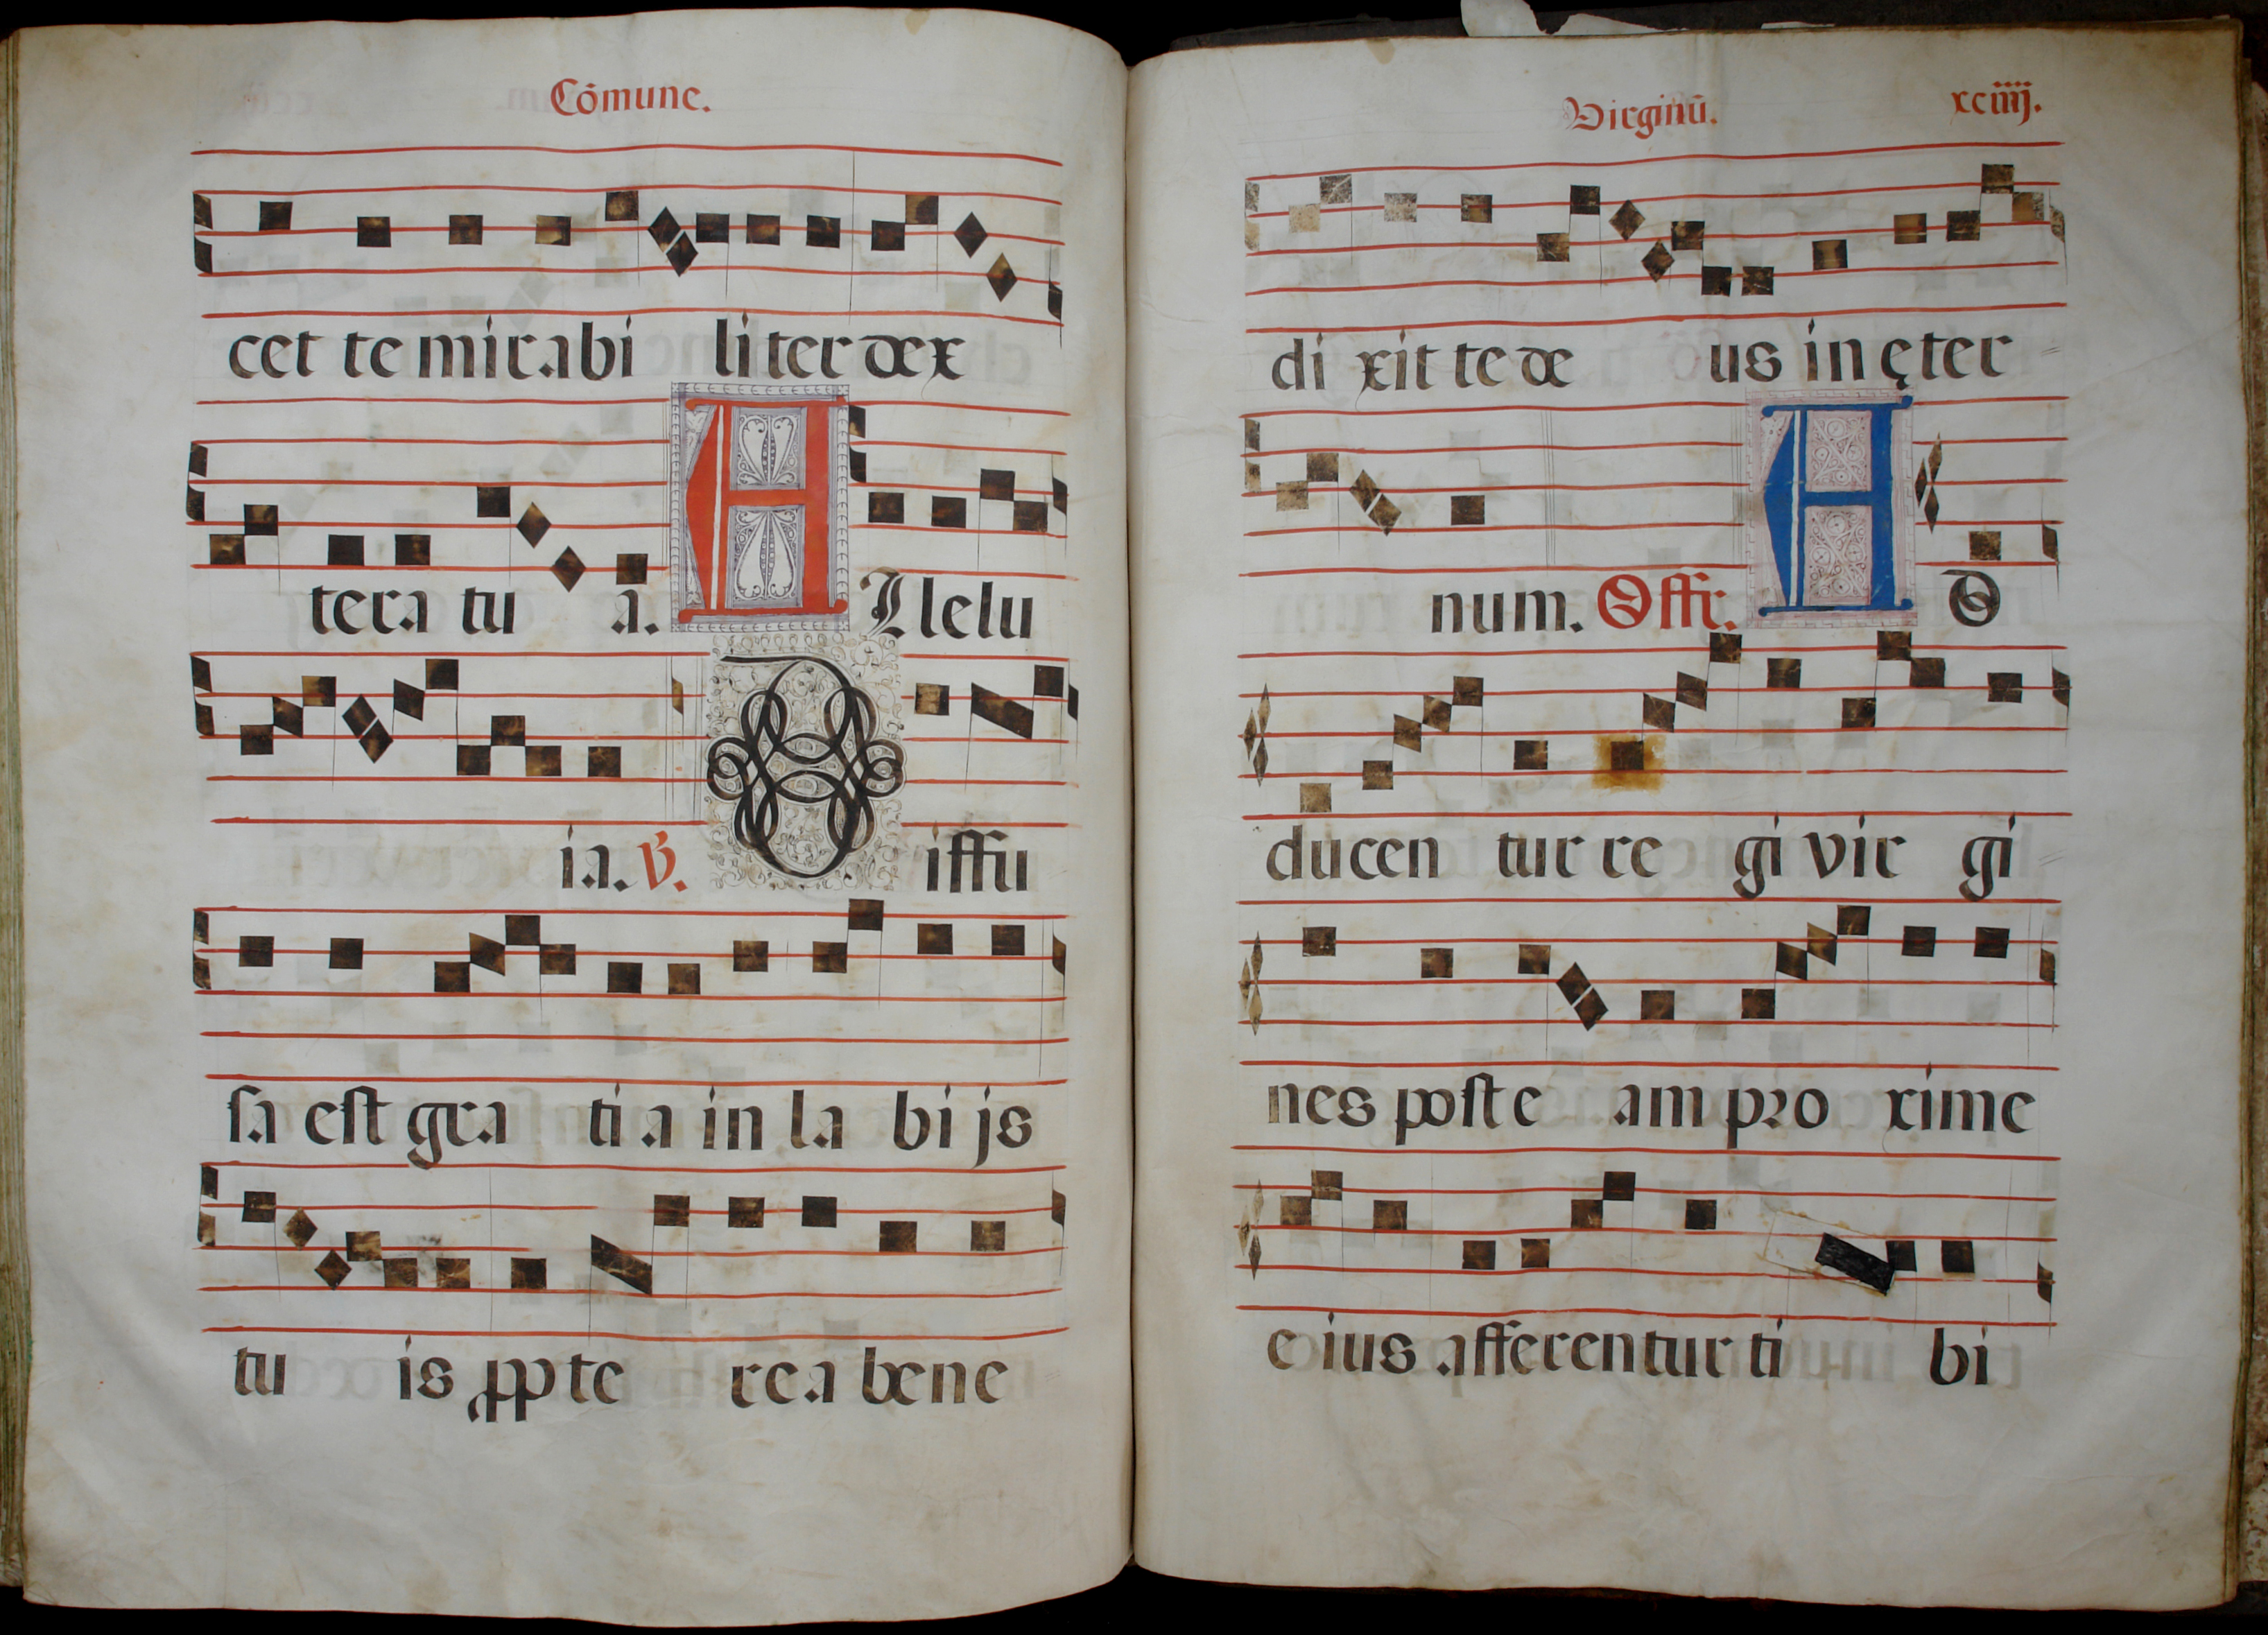 Cōmune.
cet te mirabi liter dex
tera tu a. A Llelu
ia. ℣. Diffu
ſa eſt gra ti a in la bi js
tu is ꝓpte re a bene
Virginū. xciiij.
di xit te de us in ęter
num. Offr. A D
ducen tur re gi vir gi
nes poſt e am pro xime
e ius afferentur ti bi